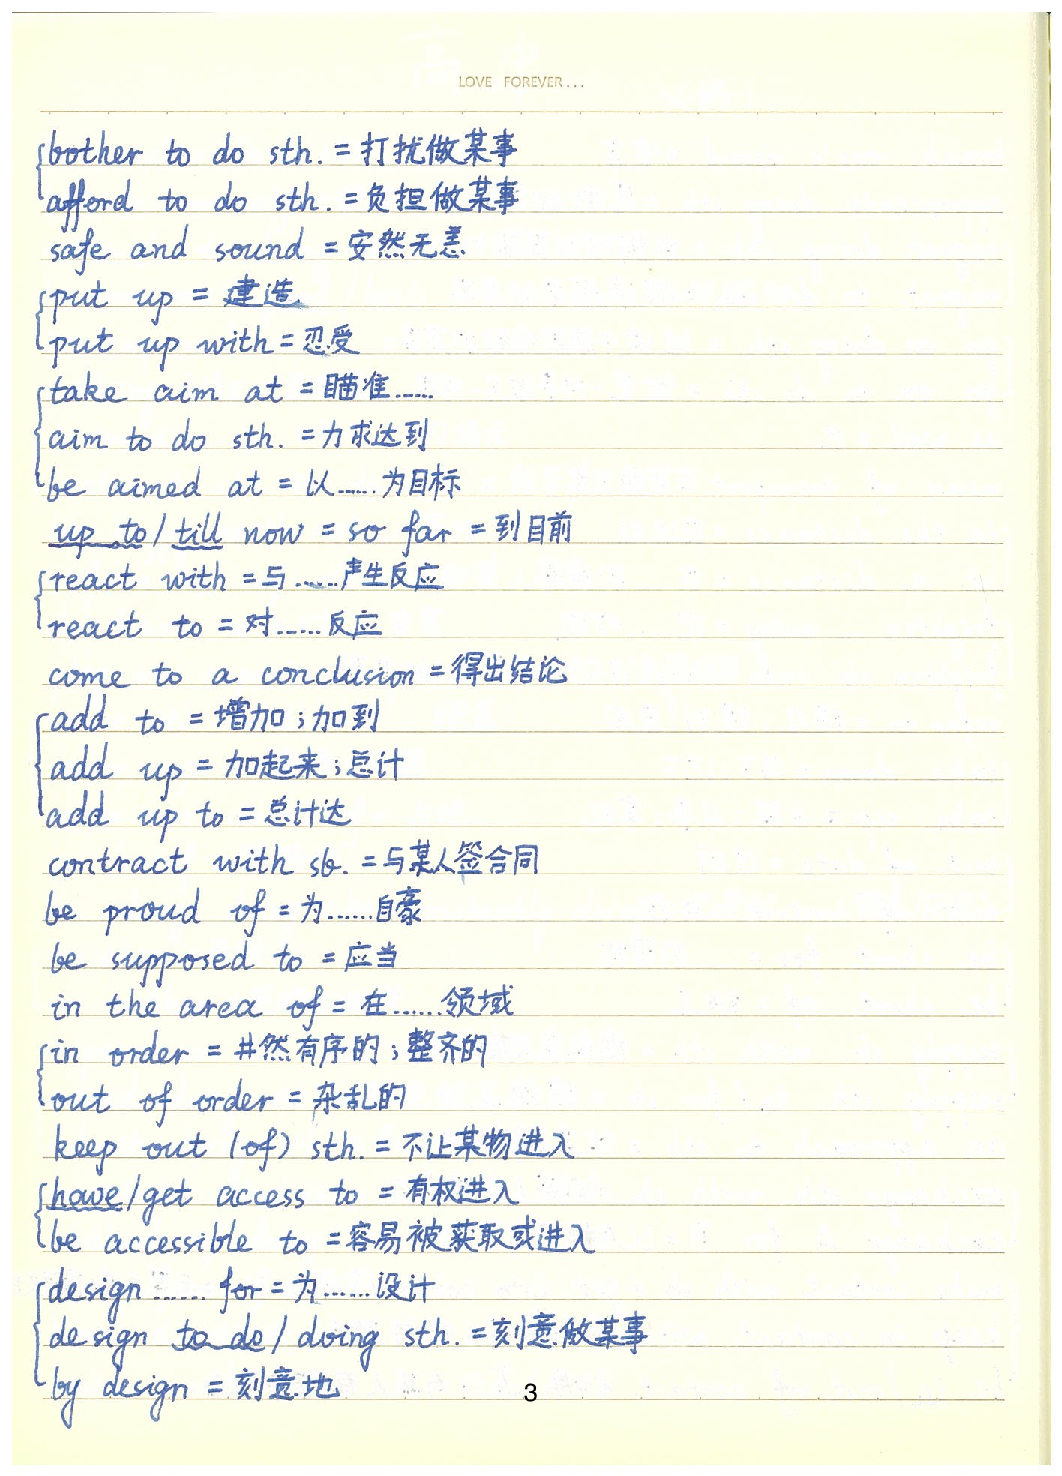 LOVE FOREVER...
bother to do sth. = 打扰做某事
afford to do sth. = 负担做某事
safe and sound = 安然无恙
put up = 建造
put up with = 忍受
take aim at = 瞄准……
aim to do sth. = 力求达到
be aimed at = 以……为目标
up to / till now = so far = 到目前
react with = 与……产生反应
react to = 对……反应
come to a conclusion = 得出结论
add to = 增加；加到
add up = 加起来；总计
add up to = 总计达
contract with sb. = 与某人签合同
be proud of = 为……自豪
be supposed to = 应当
in the area of = 在……领域
in order = 井然有序的；整齐的
out of order = 杂乱的
keep out (of) sth. = 不让某物进入
have/get access to = 有权进入
be accessible to = 容易被获取或进入
design …… for = 为……设计
design to do / doing sth. = 刻意做某事
by design = 刻意地
3